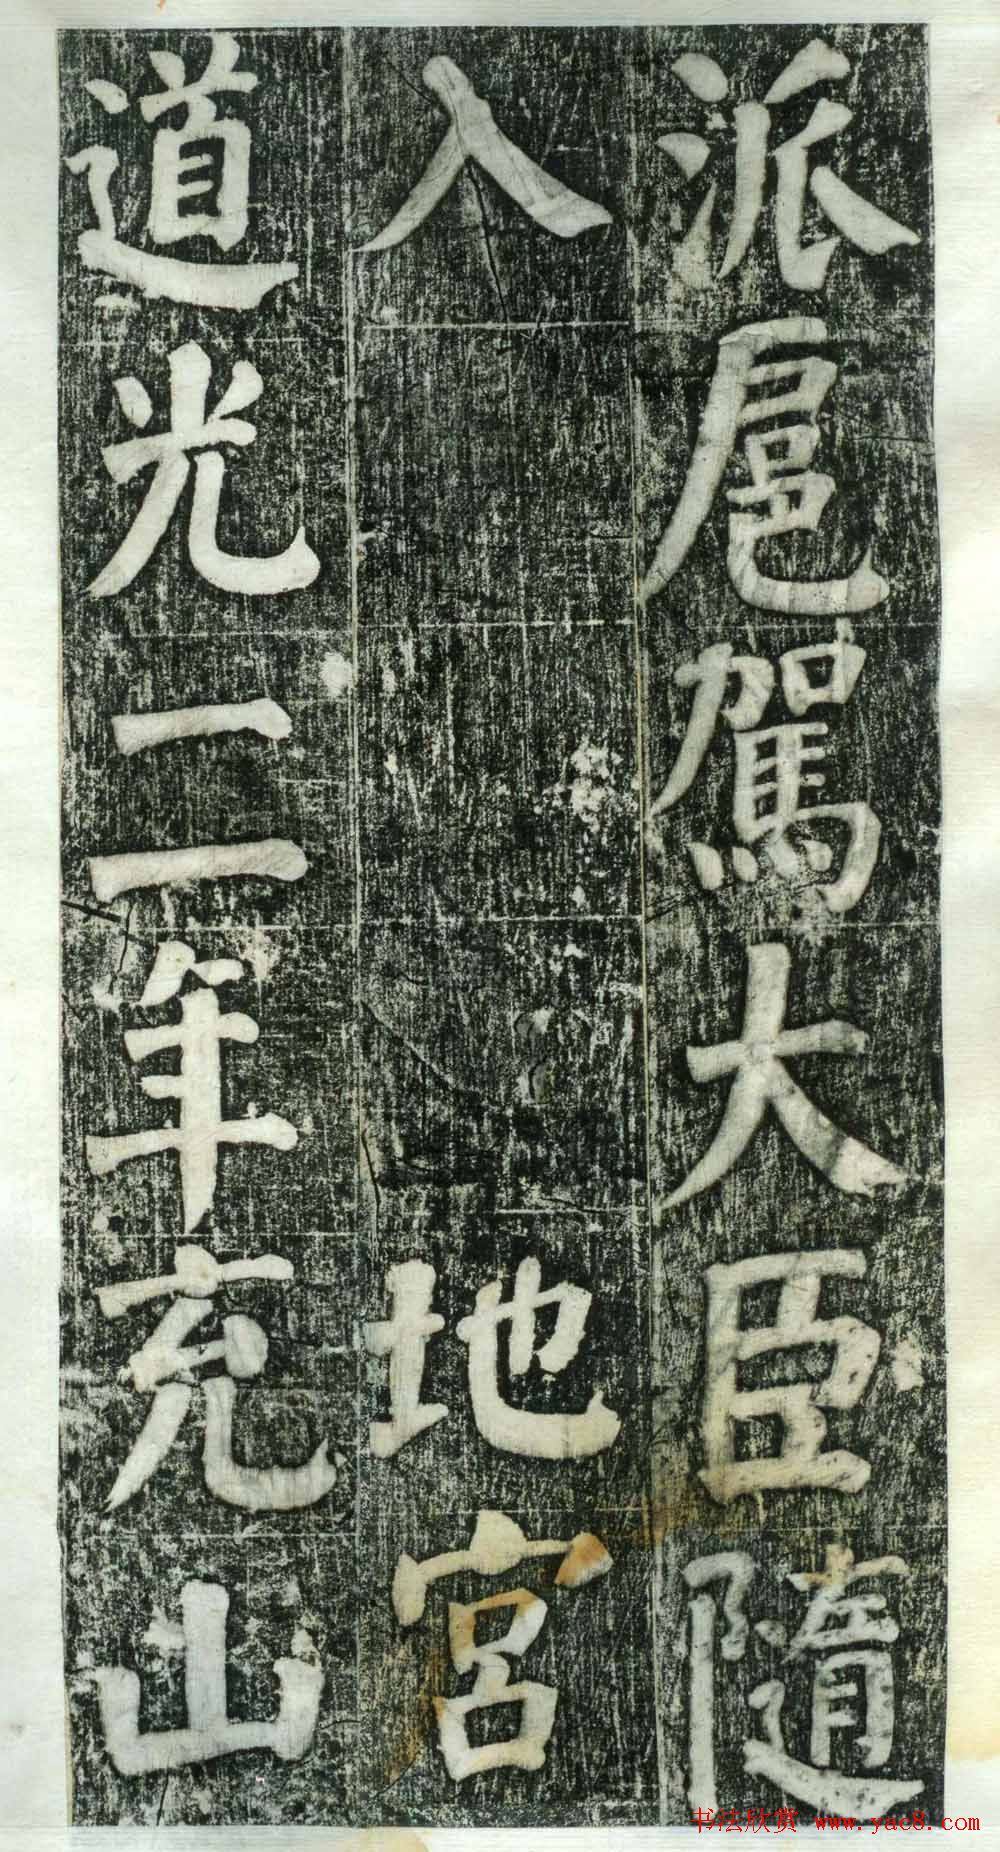 派扈駕大臣隨
入 地宮
道光二年充山
书法欣赏 www.yac8.com